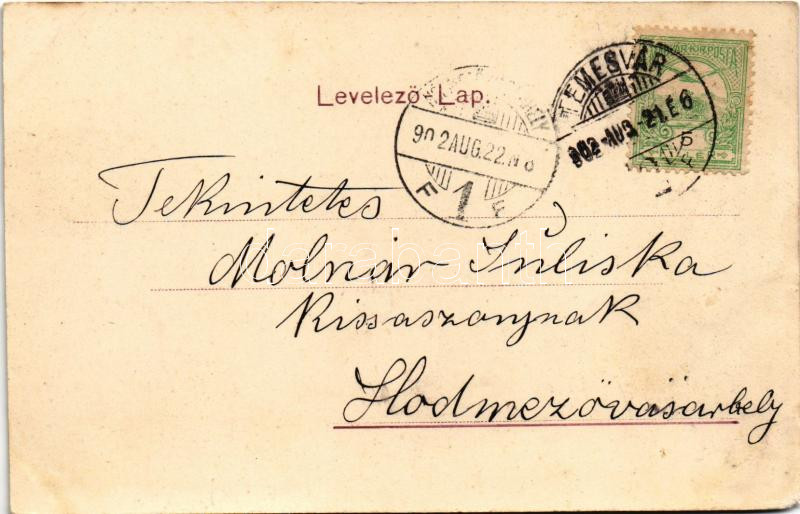 Levelező-Lap.
MAGYAR KIR. POSTA
TEMESVÁR
902 AUG. 21. É 6
902 AUG. 22. N 8
1
F F
Tekintetes
Molnár Juliska
Kissaszonynak
Hodmezövásárhely